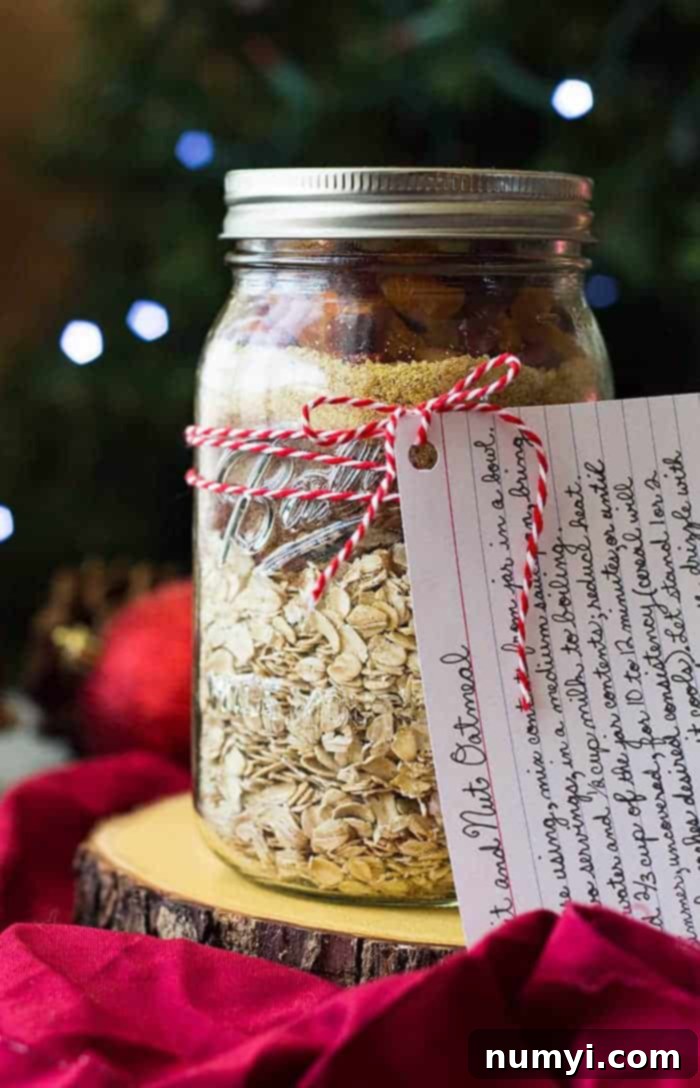 Ball
it and Nut Oatmeal
using, mix cont from jar in a bowl.
o servings, in a medium sauc an, bring
water and ¼ cup milk to boiling
d 2/3 cup of the jar contents; reduce heat.
immer, uncovered, for 10 to 12 minutes, or until
desired consistency (cereal will
it cools). Let stand for 2
drizzle with
numyi.com